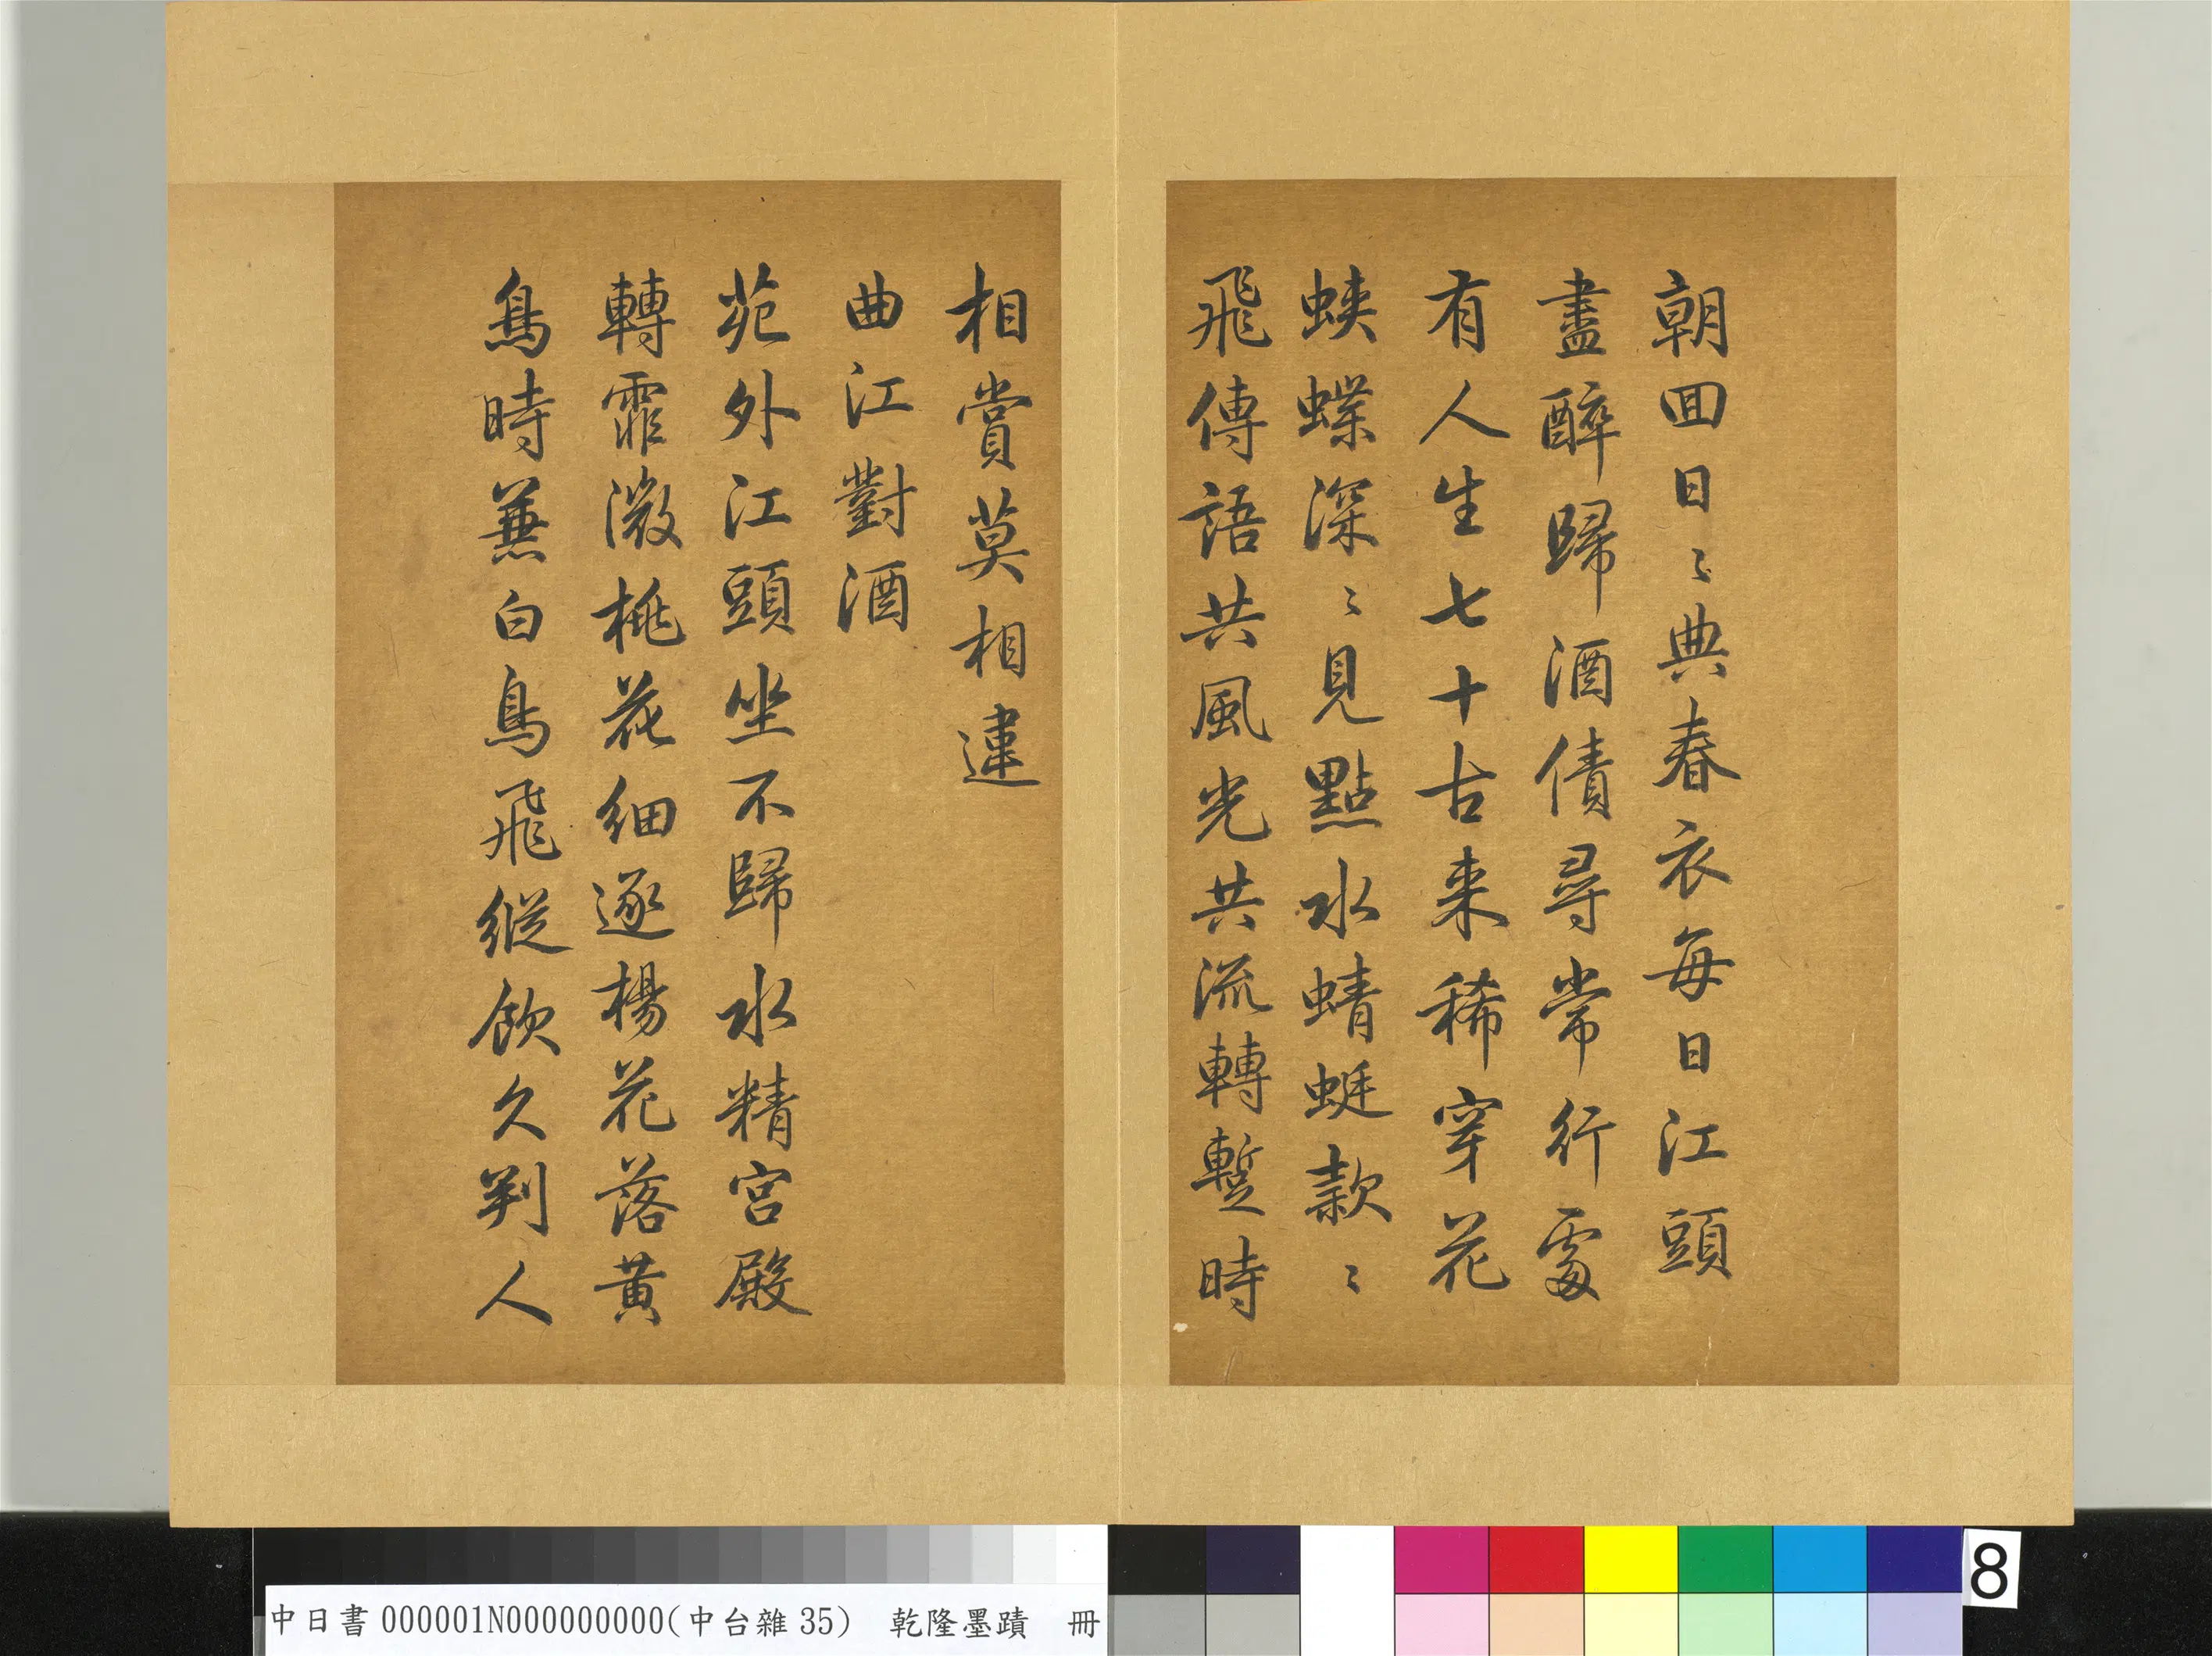 朝回日〻典春衣每日江頭
盡醉歸酒債尋常行處
有人生七十古来稀穿花
蛺蝶深〻見點水蜻蜓款〻
飛傳語共風光共流轉暫時
相賞莫相違
曲江對酒
苑外江頭坐不歸水精宮殿
轉霏微桃花細逐楊花落黃
鳥時蒹白鳥飛縱飲久判人
中日書 000001N000000000(中台雜 35) 乾隆墨蹟 冊
8